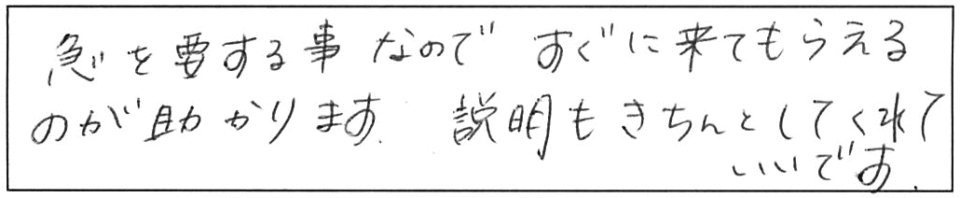 急を要する事なので すぐに来てもらえる
のが助かります. 説明もきちんとしてくれて
いいです.